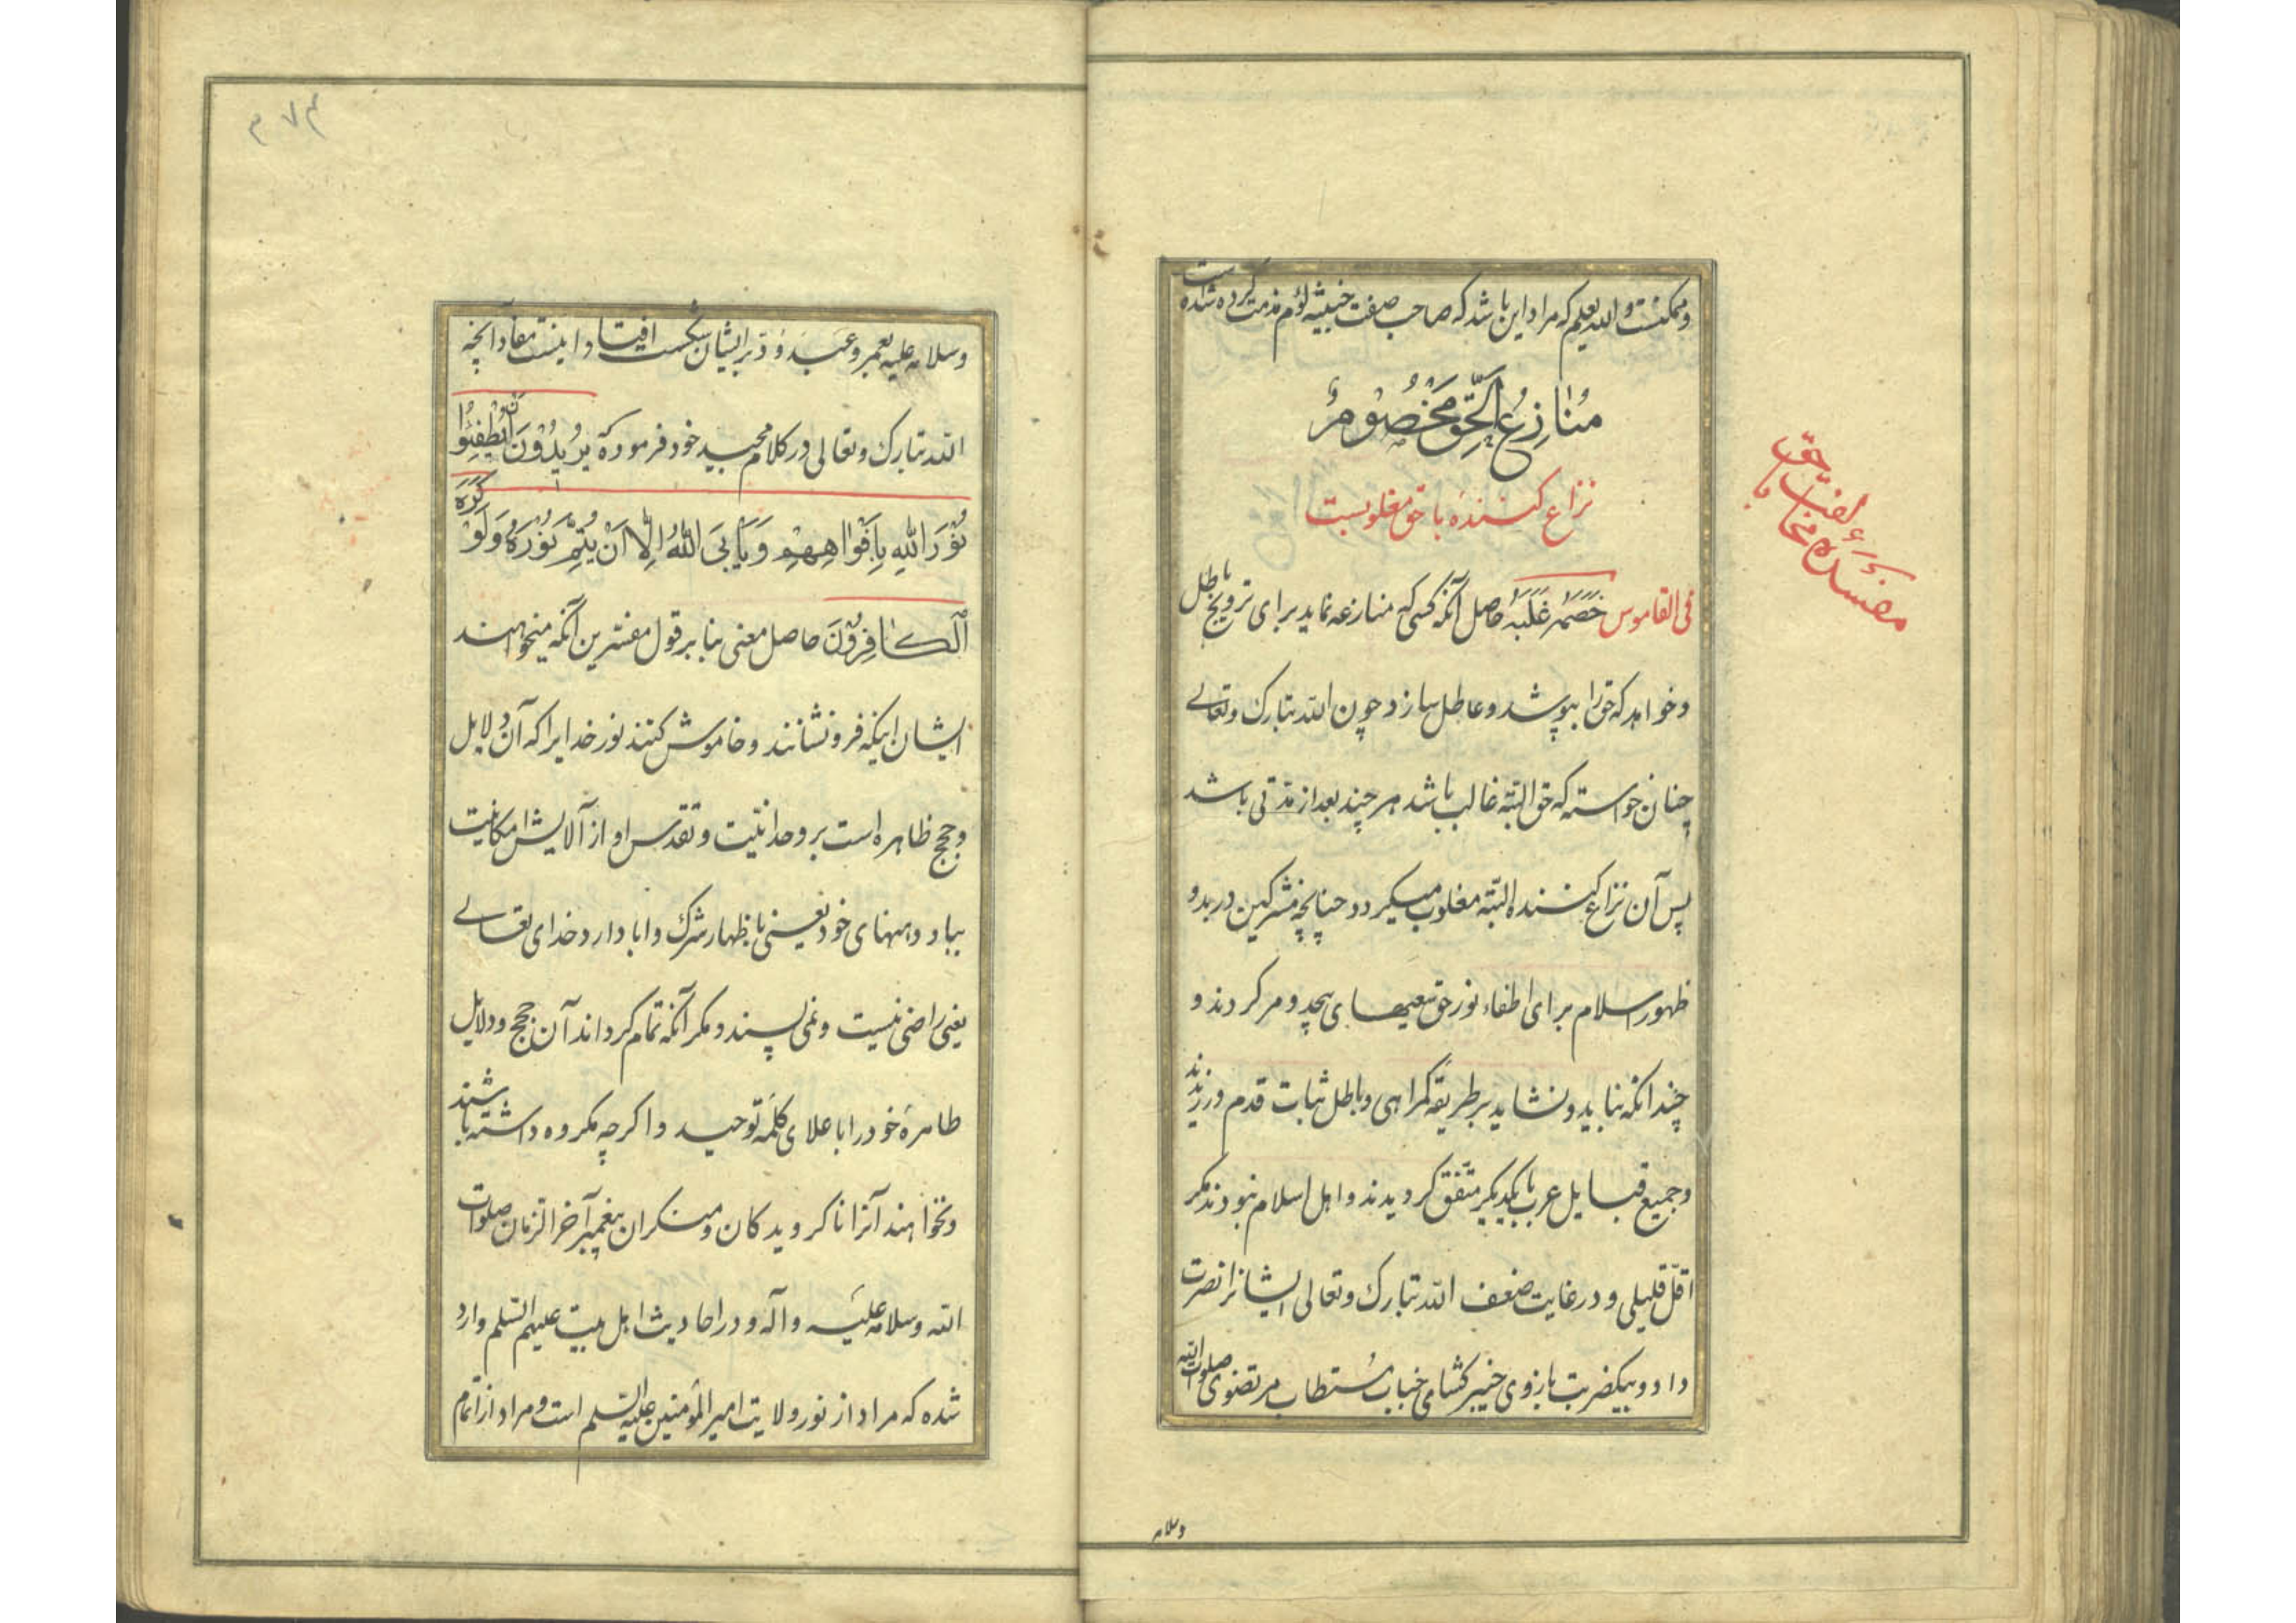 وممکنست والله یعلم که مراد این باشد که صاحب صفت خبیثه لؤم مذمت کرده شده است
مُنازِعُ الحَقِّ مَخْصُومٌ
نزاع کننده با حق مغلوبست
فی القاموس خَصَمَهُ غَلَبَهُ حاصل آنکه کسی که منازعه نماید برای ترویج باطل
وخواهد که حق را بپوشد وعاطل سازد چون الله تبارک وتعالی
چنان خواسته که حق البته غالب باشد هر چند بعد از مدتی باشد
پس آن نزاع کننده البته مغلوب میگردد چنانچه مشرکین در بدو
ظهور اسلام برای اطفاء نور حق سعیهای بیحد و مر کردند و
چندانکه نباید ونشاید بر طریقه گمراهی وباطل ثبات قدم ورزیدند
وجمیع قبایل عرب با یکدیگر متفق گردیدند واهل اسلام نبودند مگر
اقلّ قلیلی ودر غایت ضعف الله تبارک وتعالی ایشانرا نصرت
داد وبیکضربت بازوی خیبر کشای جناب مُستطاب مرتضوی صلوات الله
وسلام
مفسده مخالفت با حق
۴۷۴
وسلامه علیه بعمرو عَبدَوُدّ بر ایشان شکست افتاد واینست مفاد آنچه
الله تبارک وتعالی در کلام مجید خود فرموده که یُرِیْدُوْنَ اَنْ یُطْفِئُوا
نُوْرَ اللهِ بِاَفْوَاهِهِمْ وَیَاْبَی اللهُ اِلّا اَنْ یُتِمَّ نُوْرَهُ وَلَوْ کَرِهَ
الْکافِرُوْنَ حاصل معنی بنا بر قول مفسّرین آنکه میخواهند
ایشان اینکه فرو نشانند وخاموش کنند نور خدایرا که آن دلایل
وحجج ظاهره است بر وحدانیّت وتقدس او از آلایش امکانیت
بباد دهنهای خود یعنی باظهار شرک وابا دارد خدای تعالی
یعنی راضی نیست ونمی پسندد مگر آنکه تمام گرداند آن حجج ودلایل
طاهرهٔ خود را باعلای کلمهٔ توحید واگرچه مکروه داشته باشند
ونخواهند آنرا ناگرویدگان ومنکران پیغمبر آخر الزمان صلوات
الله وسلامه علیه وآله ودر احادیث اهل بیت علیهم السّلم وارد
شده که مراد از نور ولایت امیر المؤمنین علیه السّلم است ومراد از اتمام